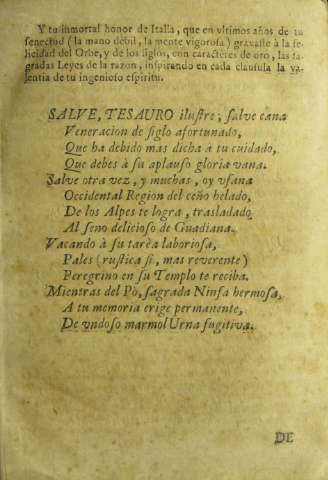 Y tu inmortal honor de Italia, que en vltimos años de tu
senectud (la mano debil, la mente vigorosa) gravaste à la fe-
licidad del Orbe, y de los siglos, con caractères de oro, las sa-
gradas Leyes de la razon, inspirando en cada clausula la va-
lentia de tu ingenioso espiritu.
SALVE, TESAURO ilustre, salve cana
Veneracion de siglo afortunado,
Que ha debido mas dicha à tu cuidado,
Que debes à su aplauso gloria vana.
Salve otra vez, y muchas, oy vfana
Occidental Region del ceño helado,
De los Alpes te logra, trasladado
Al seno delicioso de Guadiana.
Vacando à su tarèa laboriosa,
Pales (rustica si, mas reverente)
Peregrino en su Templo te reciba.
Mientras del Pò, sagrada Ninfa hermosa,
A tu memoria erige permanente,
De vndoso marmol Urna fugitiva.
DE